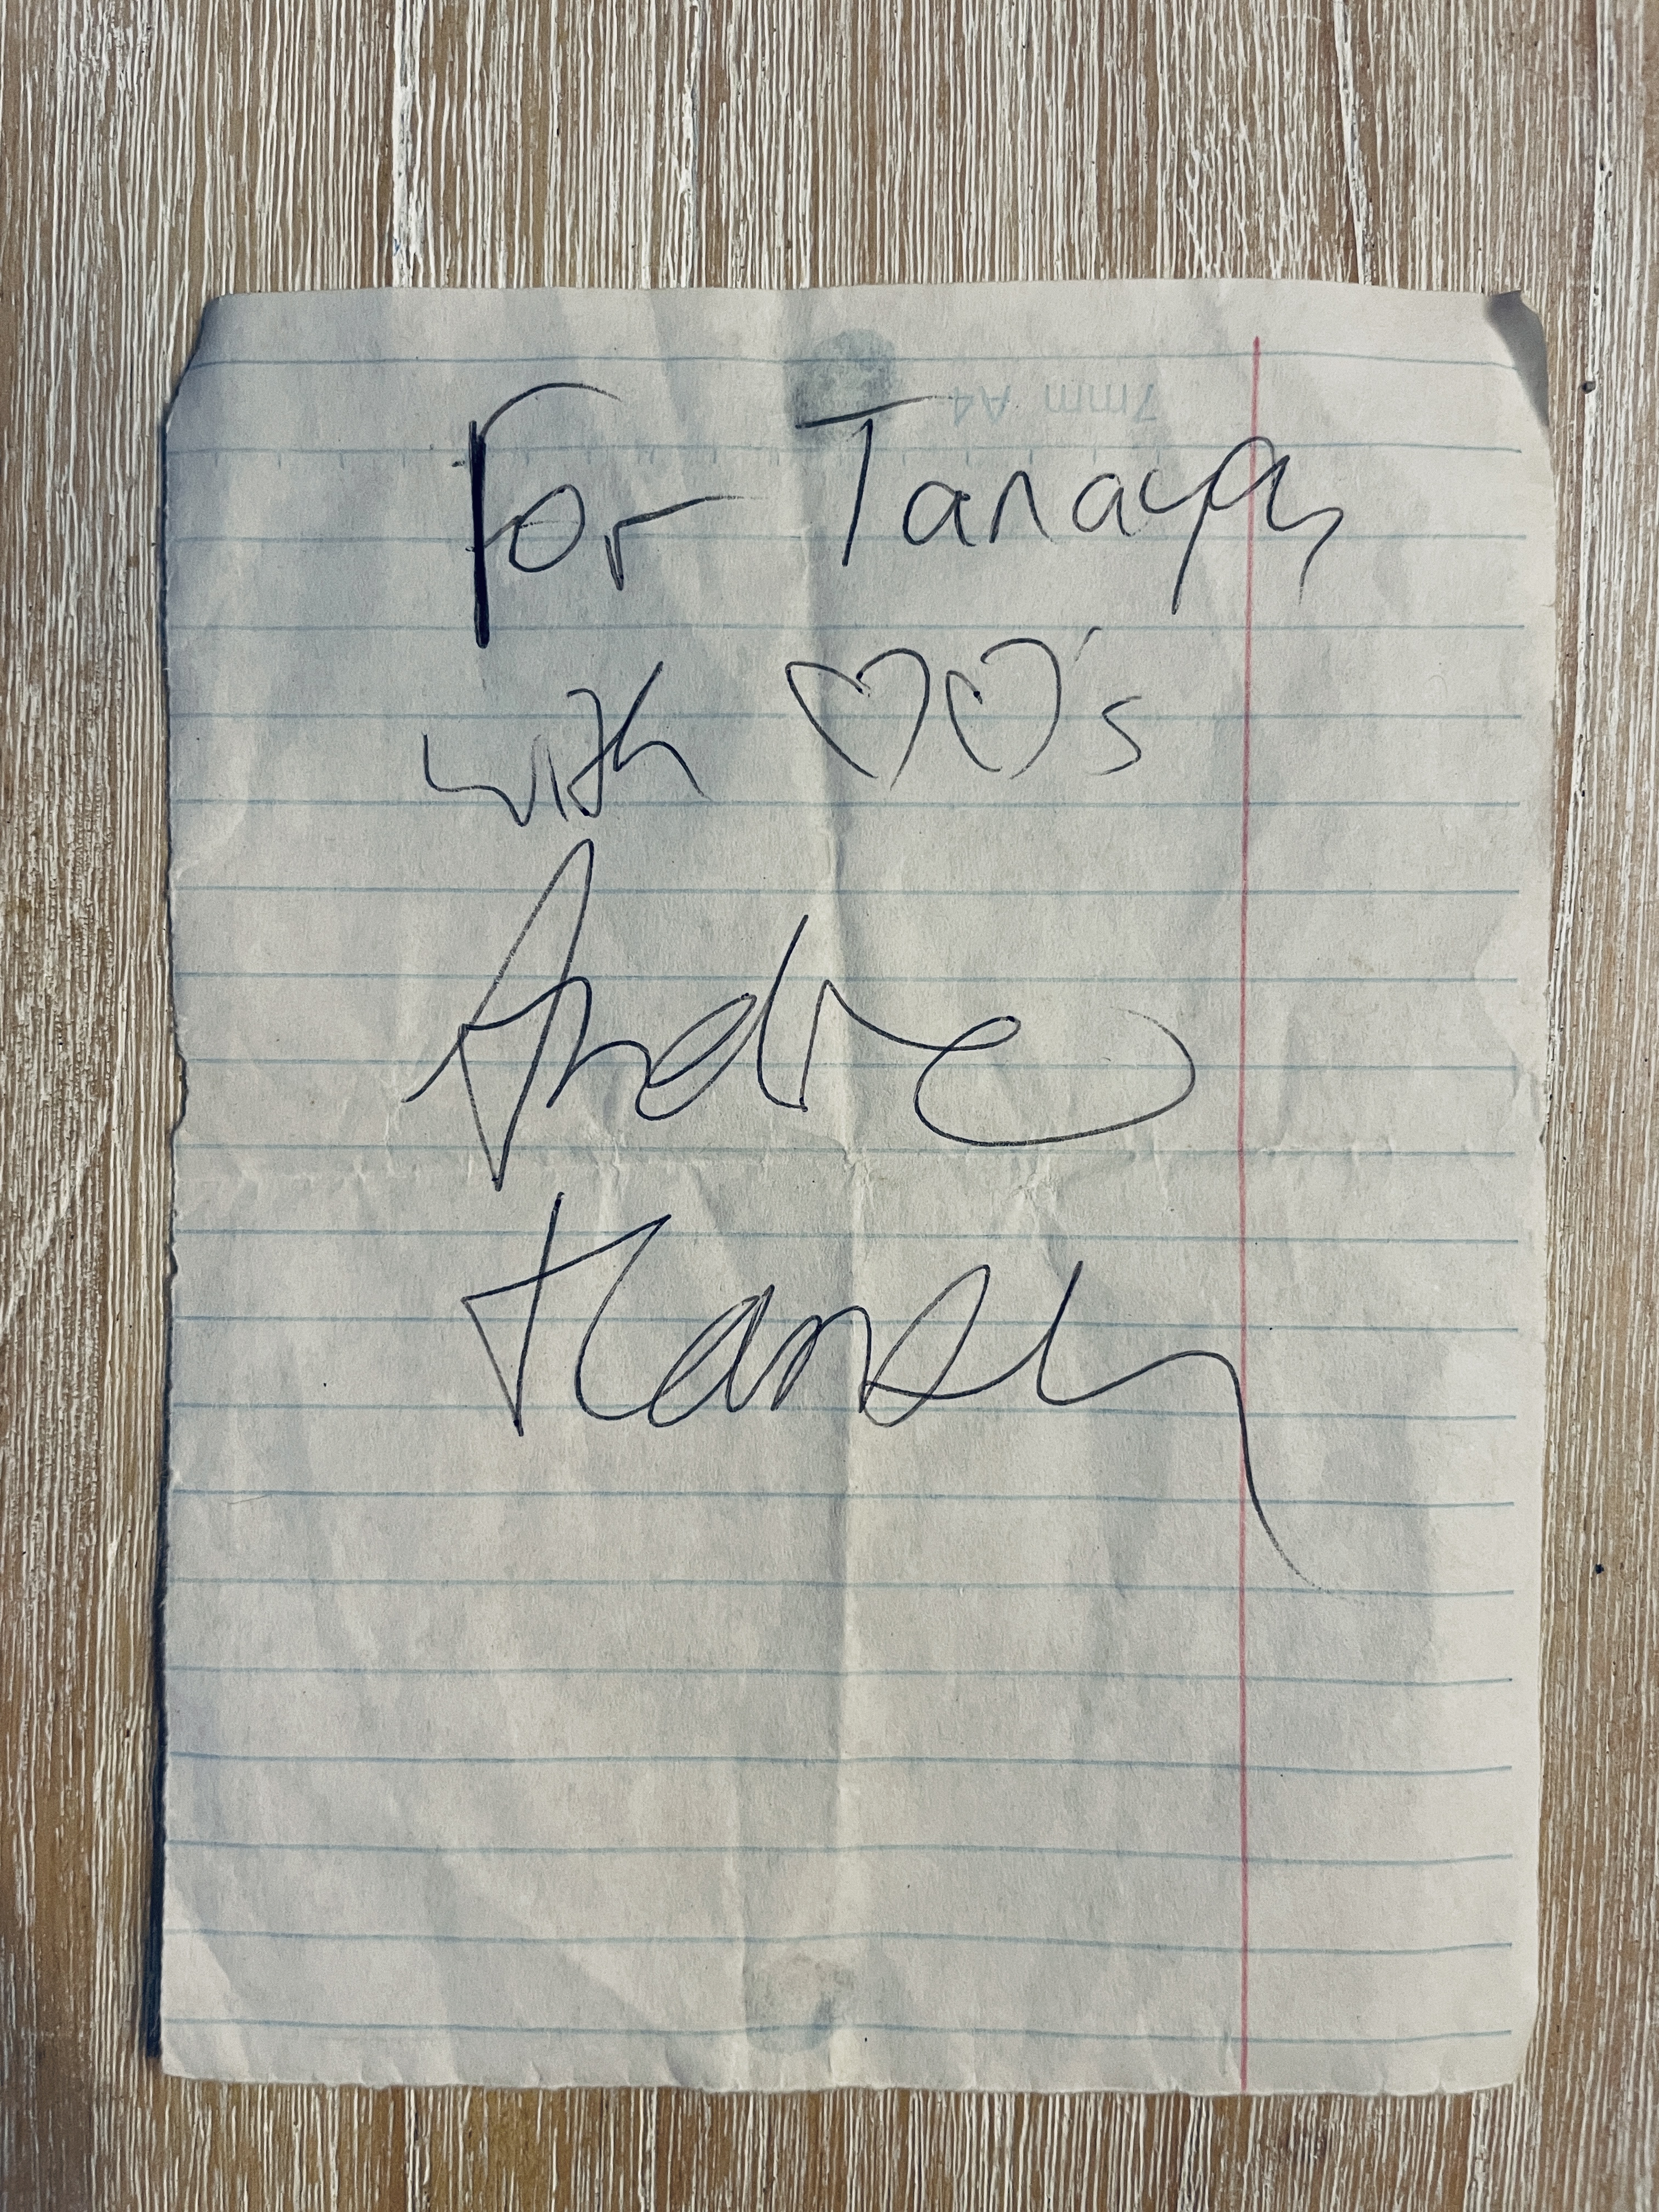 7mm A4
For Tanaya
with ♡♡'s
Andre